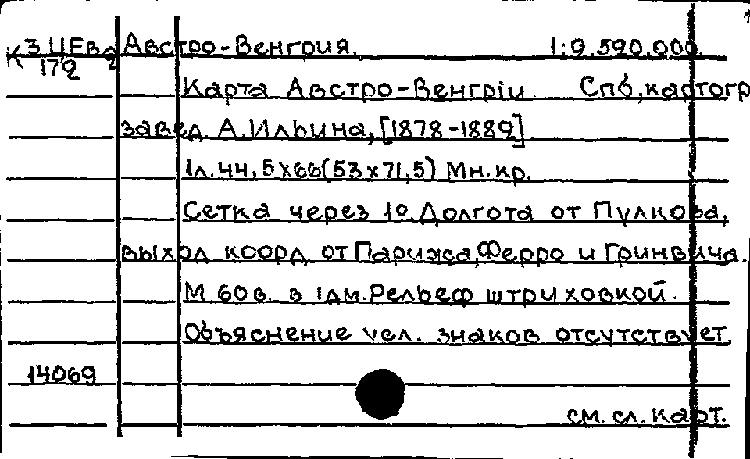 К 3 ЦЕв2 Австро-Венгрия. 1:2.520.000.
172
Карта Австро-Венгріи Спб, картогр
завед. А. Ильина, [1878-1889]
1л. 44,5х66(53х71,5) Мн. кр.
Сетка через 1° Долгота от Пулкова,
выход коорд от Парижа, Ферро и Гринвича.
М 60 в. в 1дм. Рельеф штриховкой.
Объяснение усл. знаков отсутствует
14069
см. сл. карт.